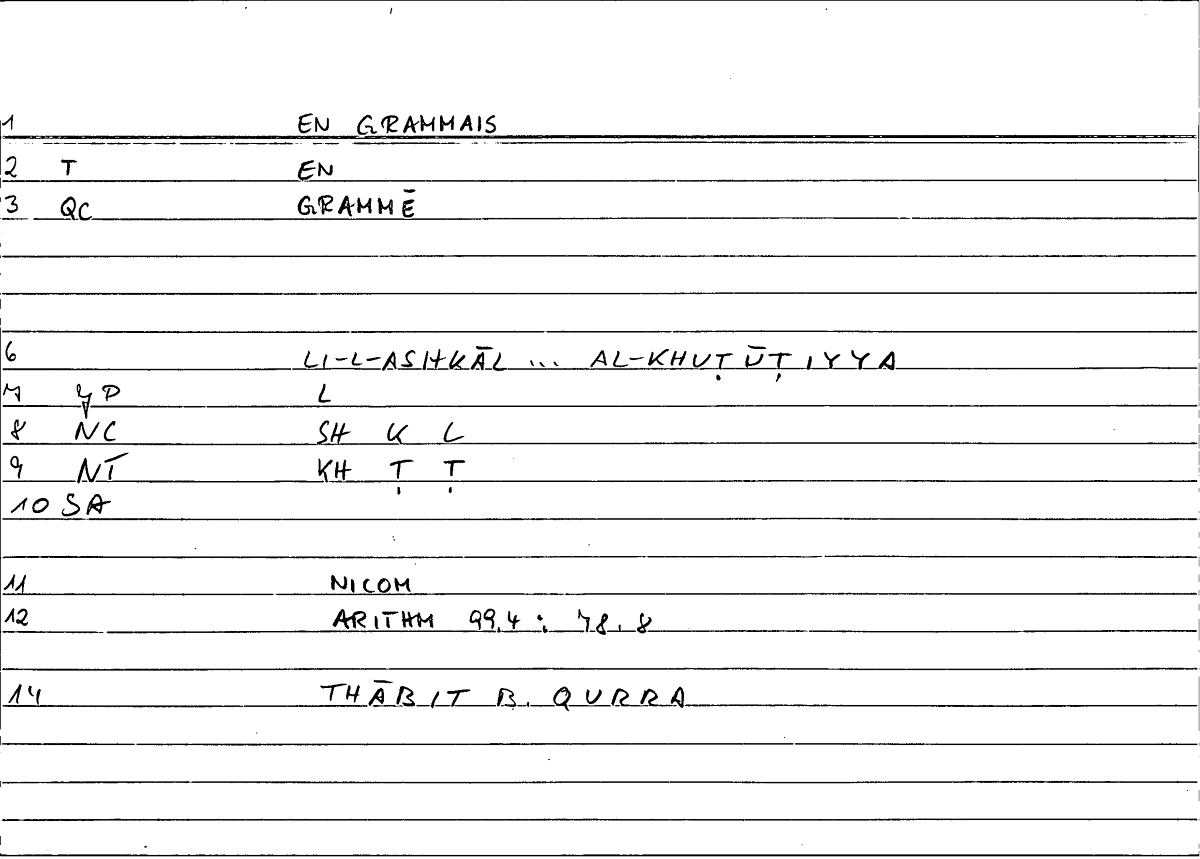 1 EN GRAMMAIS
2 T EN
3 QC GRAMMĒ
6 LI-L-ASHKĀL ... AL-KHUṬŪṬIYYA
7 P L
8 NC SH K L
9 NT KH Ṭ Ṭ
10 SA
11 NICOM
12 ARITHM 99.4 : 78.8
14 THĀBIT B. QURRA